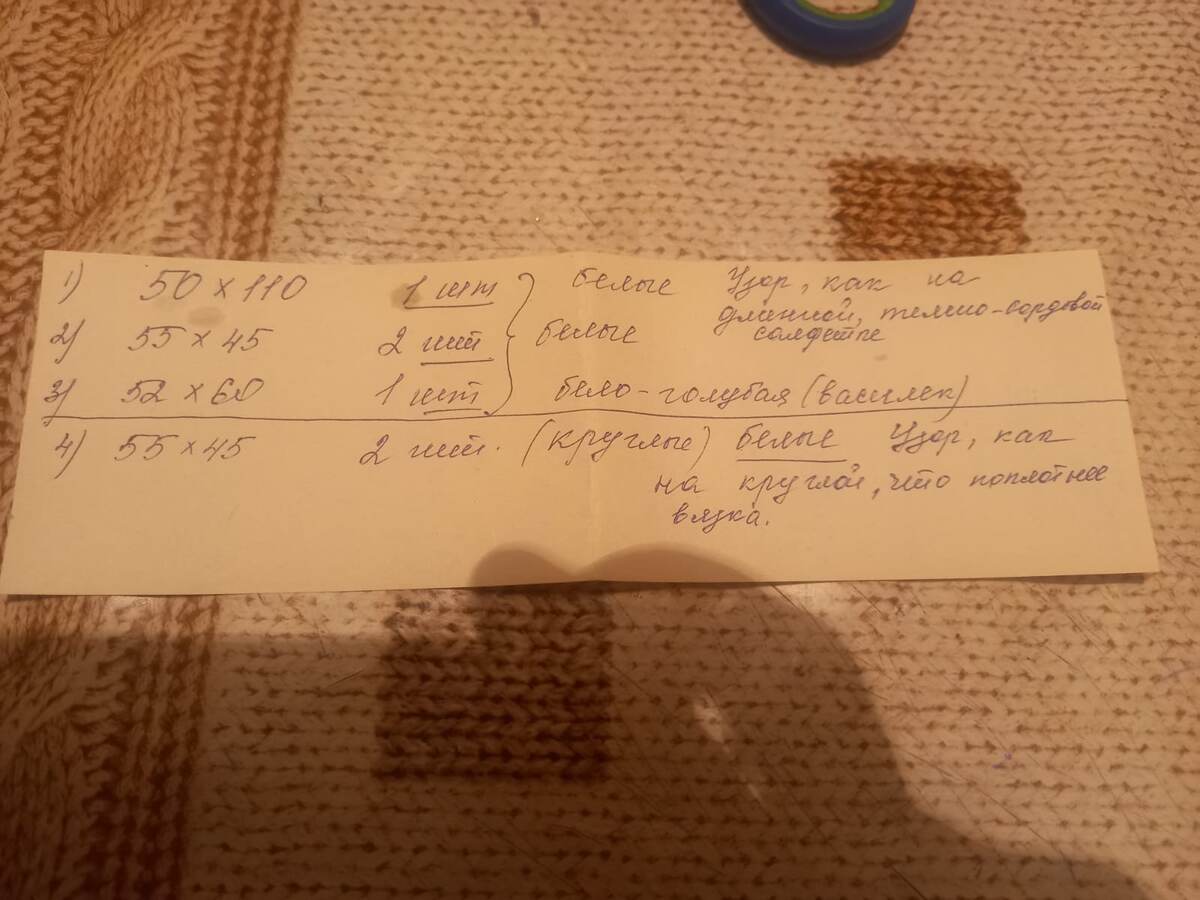 1) 50 x 110 1 шт белые Узор, как на
длинной, темно-бордовой
салфетке
2) 55 x 45 2 шт белые
3) 52 x 60 1 шт бело-голубая (василек)
4) 55 x 45 2 шт. (круглые) белые Узор, как
на круглой, что поплотнее
вязка.